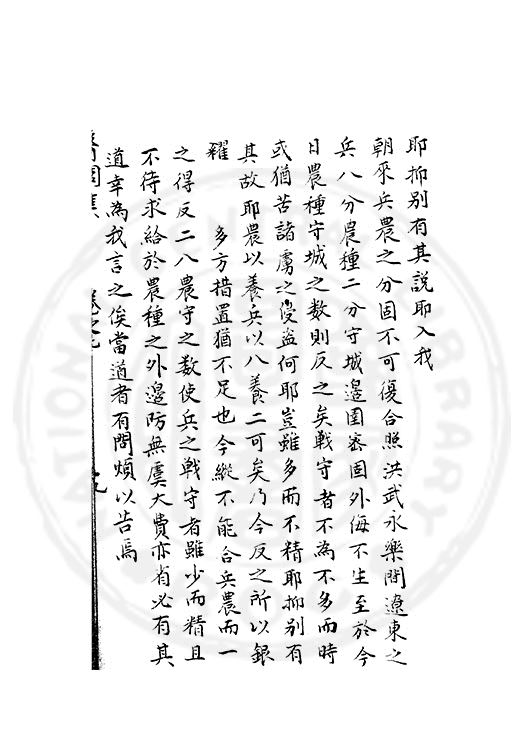 耶抑别有其說耶入我
朝來兵農之分固不可復合照洪武永樂間遼東之
兵八分農種二分守城邊圉密固外侮不生至於今
日農種守城之数則反之矣戦守者不為不多而時
或猶苦諸虜之侵盜何耶豈雖多而不精耶抑别有
其故耶農以養兵以八養二可矣乃今反之所以銀
糴多方措置猶不足也今縱不能合兵農而一
之得反二八農守之数使兵之戦守者雖少而精且
不待求給於農種之外邊防無虞大費亦省必有其
道幸為我言之俟當道者有問頻以告焉
卷之九